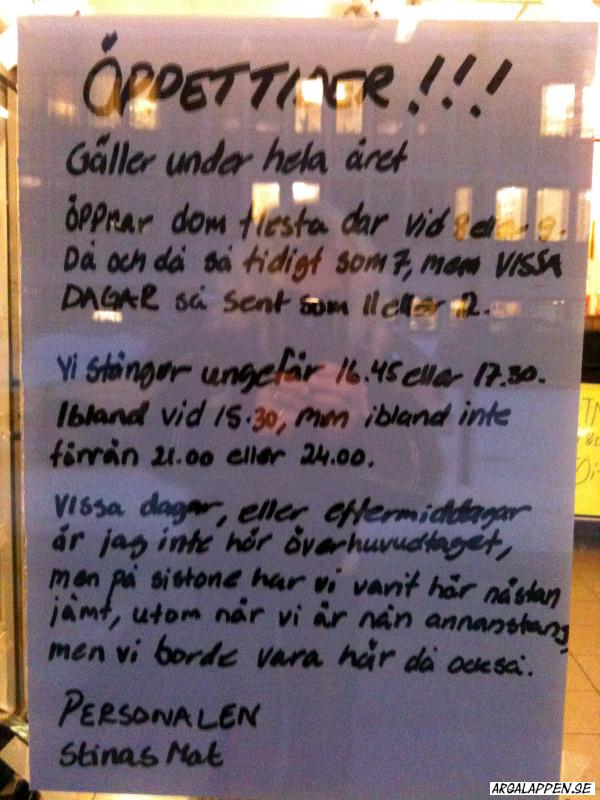 ÖPPETTIDER!!!
Gäller under hela året
ÖPPNAR dom flesta dar vid 8 eller 9.
Då och då så tidigt som 7, men VISSA
DAGAR så sent som 11 eller 12.
Vi stänger ungefär 16.45 eller 17.30.
Ibland vid 15.30, men ibland inte
förrän 21.00 eller 24.00.
Vissa dagar, eller eftermiddagar
är jag inte här överhuvudtaget,
men på sistone har vi varit här nästan
jämt, utom när vi är nån annanstans,
men vi borde vara här då också.
PERSONALEN
Stinas Mat
ARGALAPPEN.SE